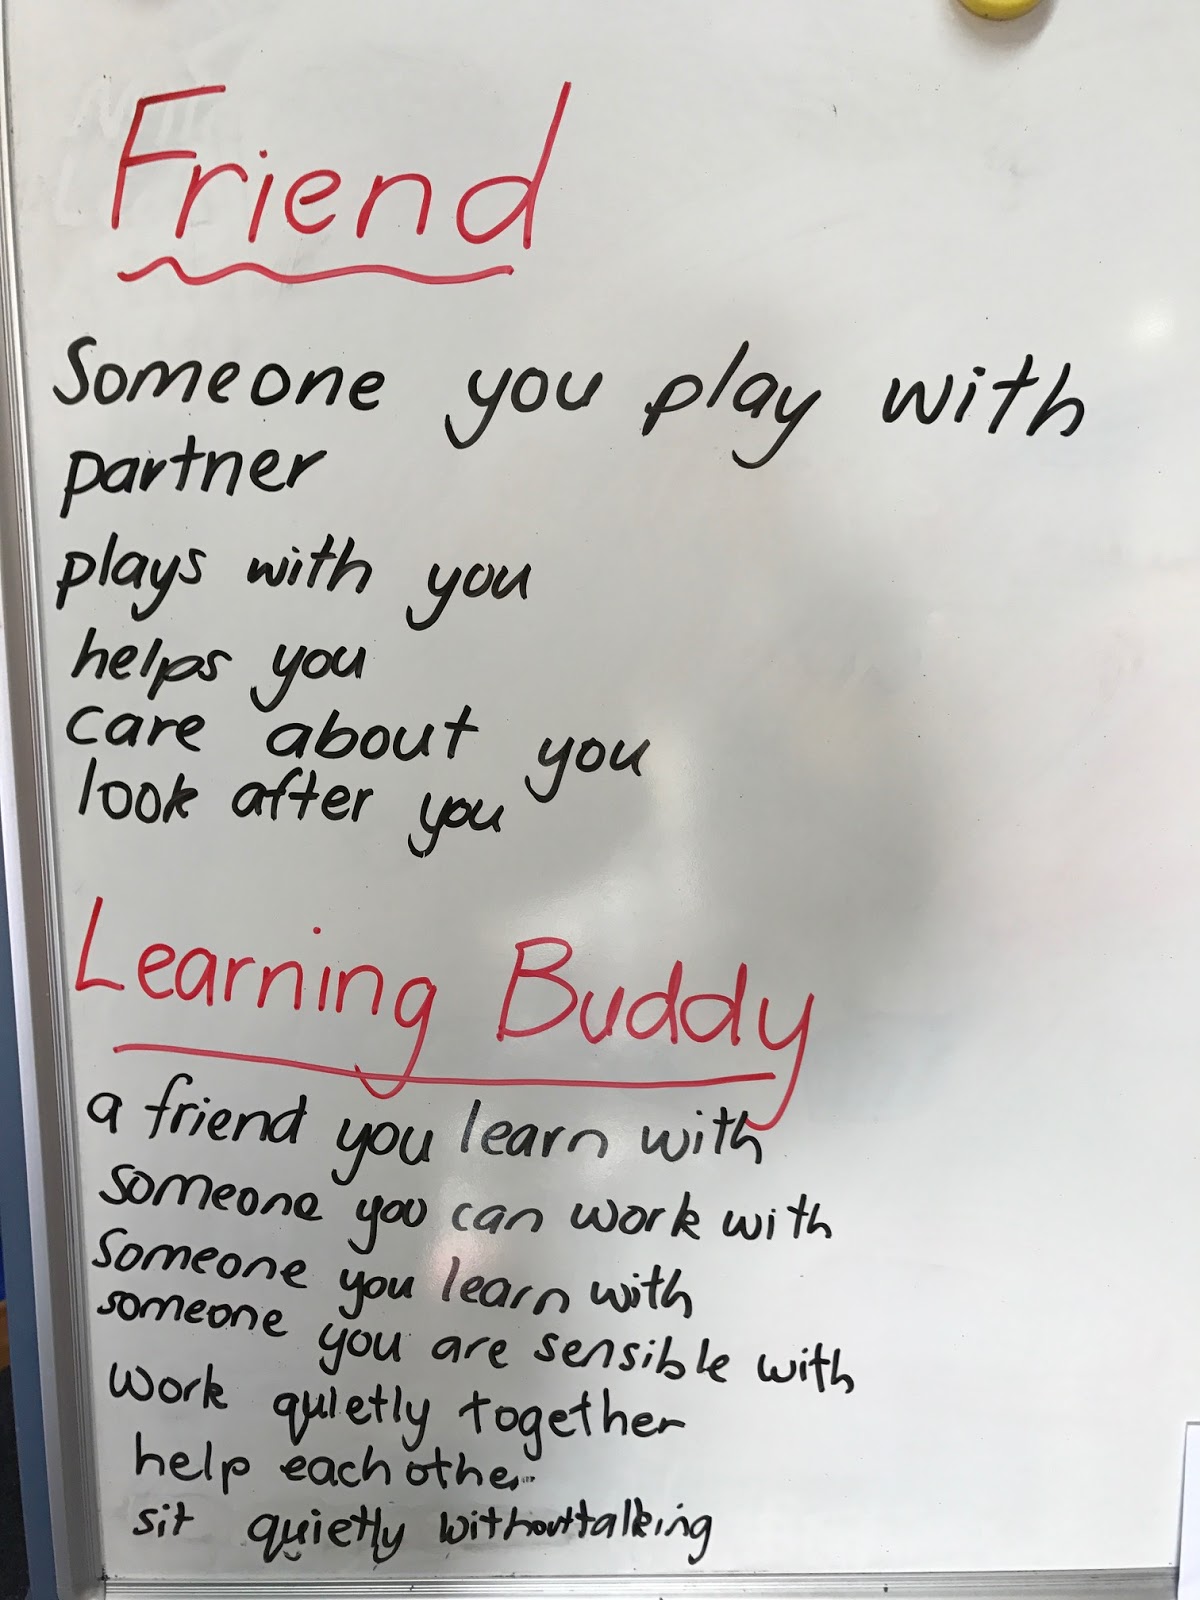 Friend
Someone you play with
partner
plays with you
helps you
care about you
look after you
Learning Buddy
a friend you learn with
someone you can work with
Someone you learn with
someone you are sensible with
work quietly together
help each other
sit quietly without talking